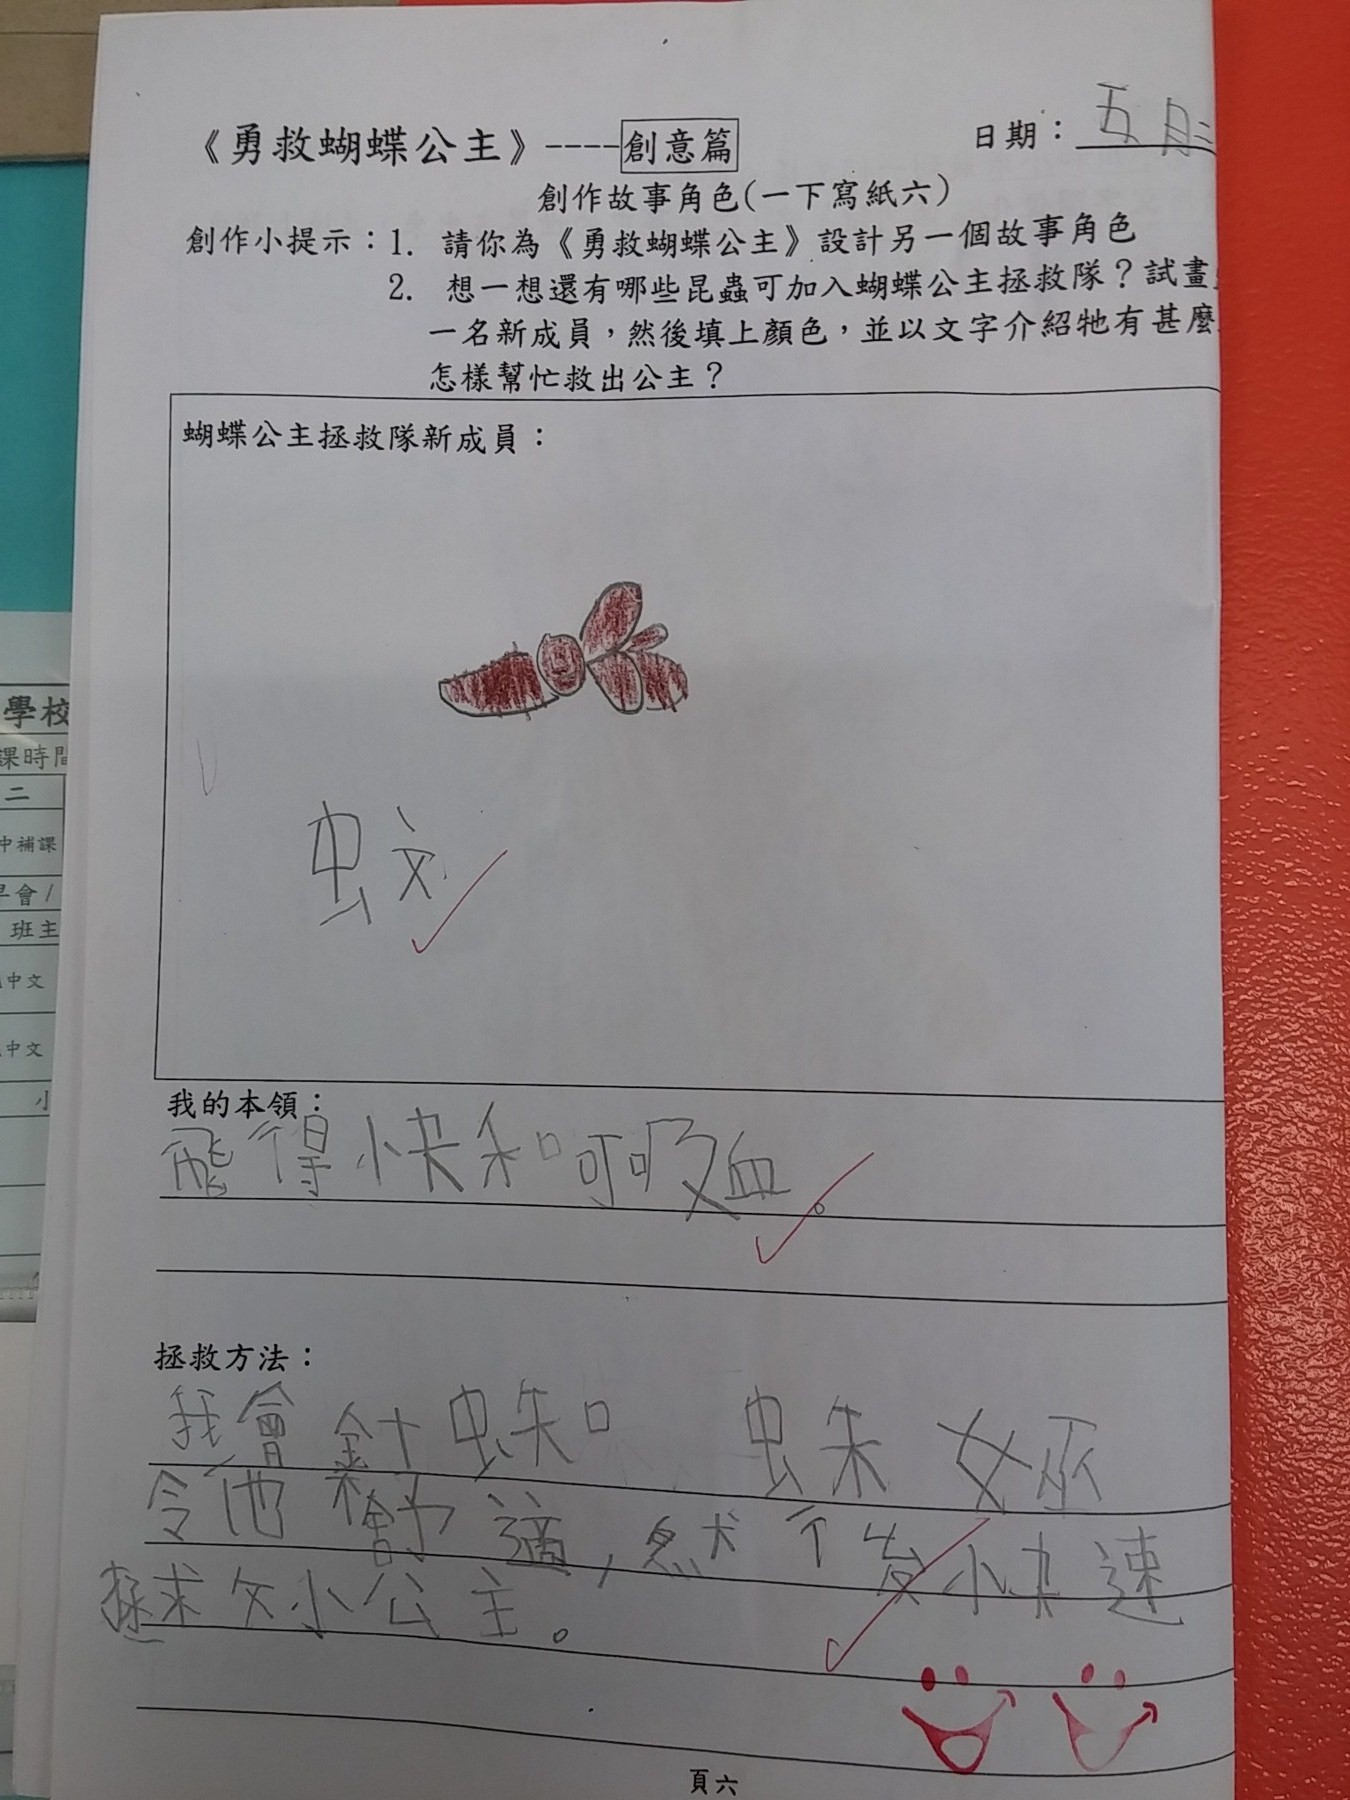 《勇救蝴蝶公主》----創意篇
日期：五月二
創作故事角色(一下寫紙六)
創作小提示：1. 請你為《勇救蝴蝶公主》設計另一個故事角色
2. 想一想還有哪些昆蟲可加入蝴蝶公主拯救隊？試畫
一名新成員，然後填上顏色，並以文字介紹牠有甚麼
怎樣幫忙救出公主？
蝴蝶公主拯救隊新成員：
蚊
我的本領：
飛得快和可吸血。
拯救方法：
我會針蜘蛛女巫
令他不舒適，然後快速
拯救小公主。
頁六
學校
課時間
二
中補課
早會/
班主
中文
中文
小